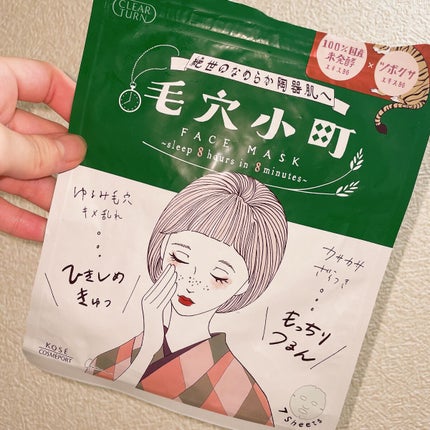 CLEAR
TURN
100%国産
米発酵
エキス配合
×
ツボクサ
エキス配合
絶世のなめらか陶器肌へ
毛穴小町
FACE MASK
~sleep 8 hours in 8 minutes~
ゆるみ毛穴
キメ乱れ
ひきしめ
きゅっ
カサカサ
ざらつき
もっちり
つるん
KOSÉ
COSMEPORT
7 Sheets